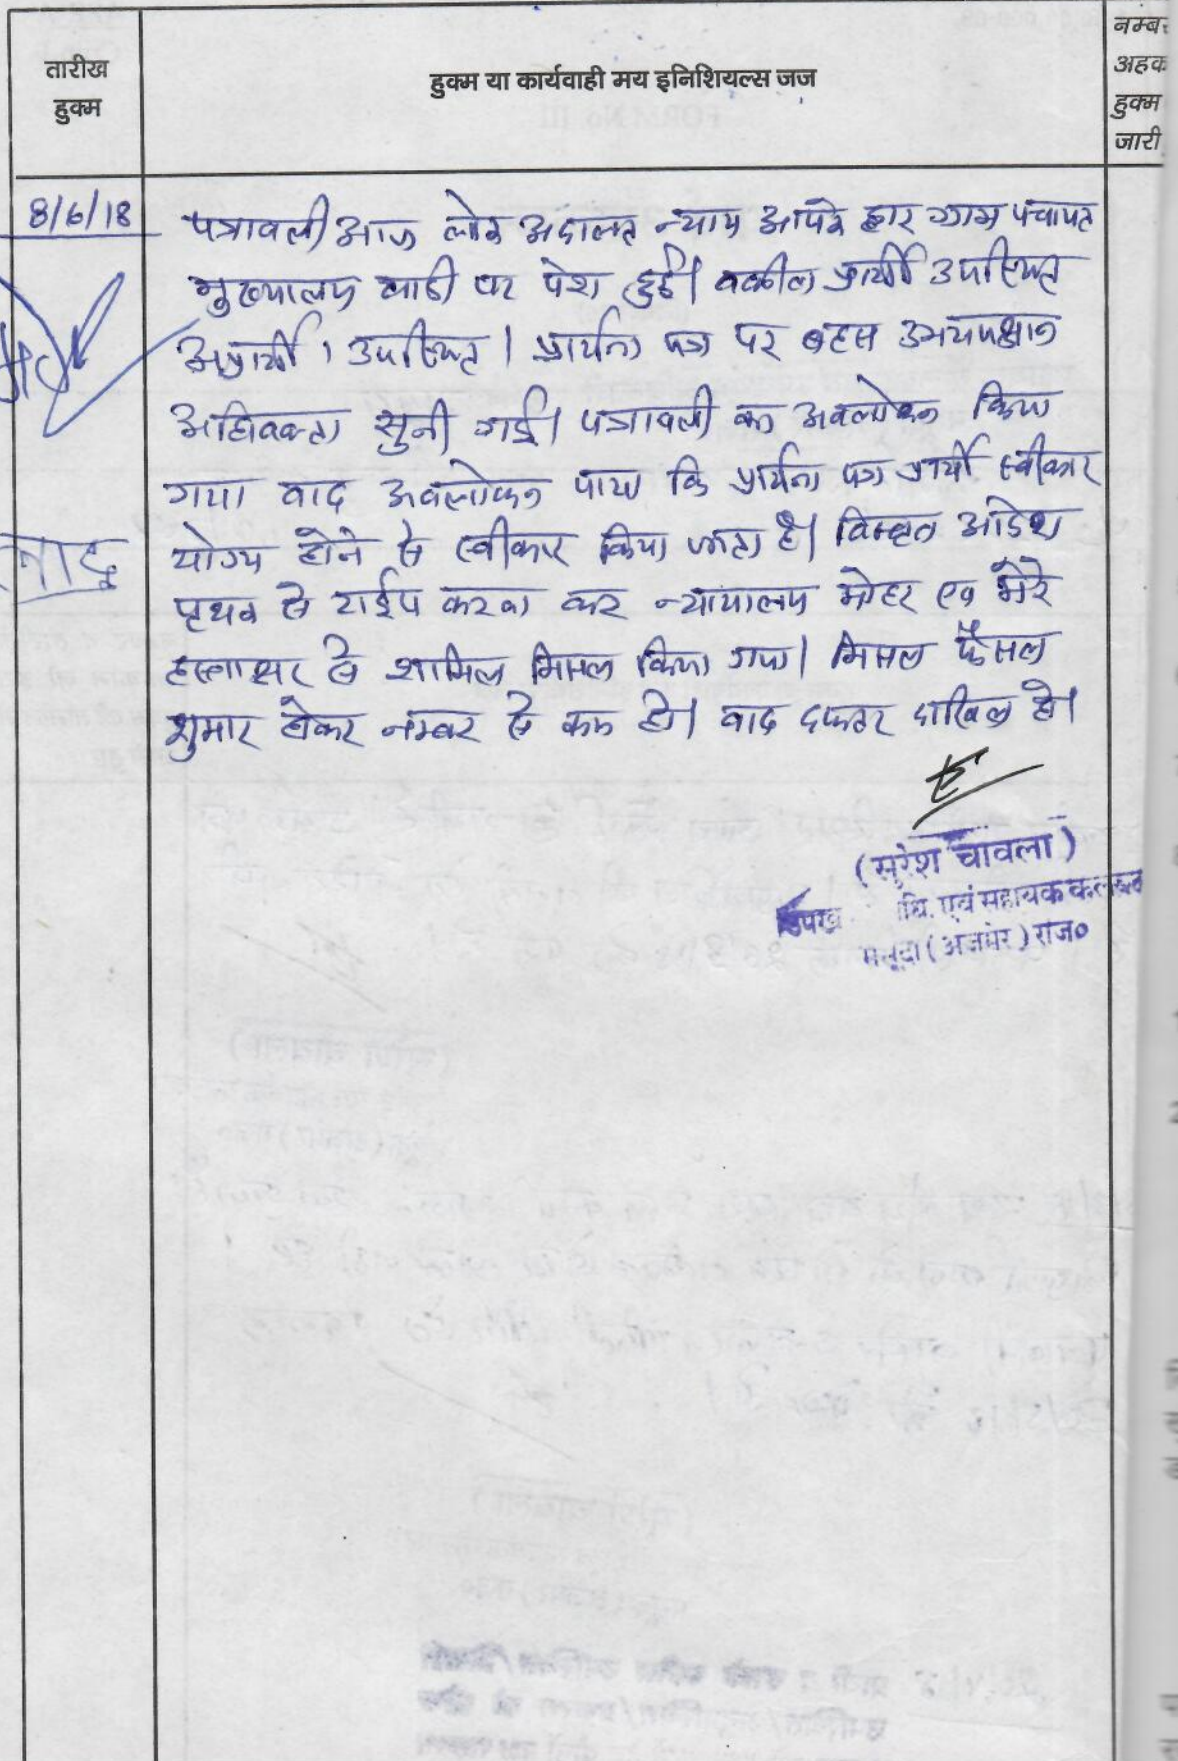 तारीख
हुक्म
हुक्म या कार्यवाही मय इनिशियल्स जज
नम्बर
अहक
हुक्म
जारी
8/6/18
पत्रावली आज लोक अदालत न्याय आपके द्वार ग्राम पंचायत
मुख्यालय बाडी पर पेश हुई। वकील प्रार्थी उपस्थित
अप्रार्थी 1 उपस्थित। प्रार्थना पत्र पर बहस उभयपक्षान
अधिवक्ता सुनी गई। पत्रावली का अवलोकन किया
गया बाद अवलोकन पाया कि प्रार्थना पत्र प्रार्थी स्वीकार
योग्य होने से स्वीकार किया जाता है। विस्तृत आदेश
पृथक से टाईप करवा कर न्यायालय मोहर एव मेरे
हस्ताक्षर से शामिल मिसल किया गया। मिसल फैसल
शुमार होकर नम्बर से कम हो। बाद दफ्तर दाखिल हो।
(सुरेश चावला)
उपख धि. एवं सहायक कलक्टर
मसूदा (अजमेर) राज०